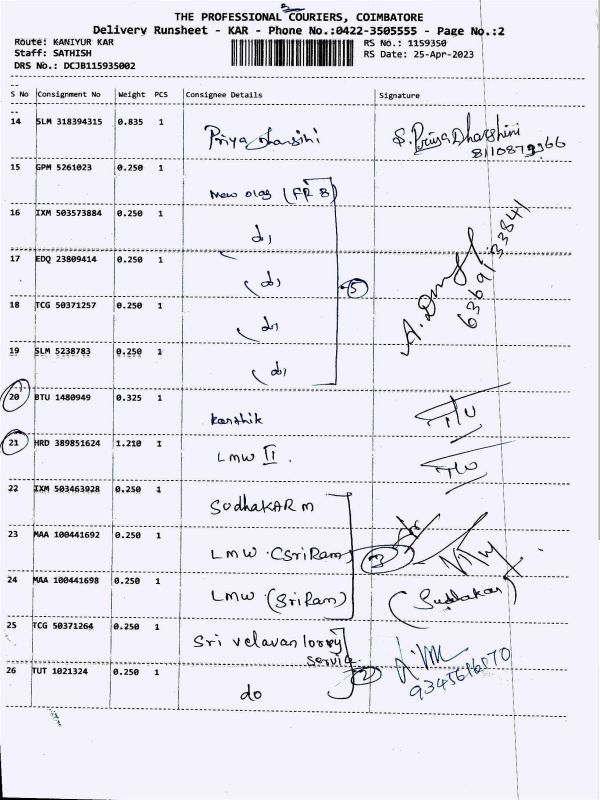 2
THE PROFESSIONAL COURIERS, COIMBATORE
Delivery Runsheet - KAR - Phone No.:0422-3505555 - Page No.:2
Route: KANIYUR KAR RS No.: 1159350
Staff: SATHISH RS Date: 25-Apr-2023
DRS No.: DCJB115935002
S No Consignment No Weight PCS Consignee Details Signature
14 SLM 318394315 0.835 1 Priya Dharsihi S. Priya Dharshini
15 GPM 5261023 0.250 1 (FR 8)
16 IXM 503573884 0.250 1 do,
17 EDQ 23809414 0.250 1 do, 5
18 TCG 50371257 0.250 1 do,
19 SLM 5238783 0.250 1 do,
63691 33841
20 BTU 1480949 0.325 1 Karthik
21 HRD 389851624 1.210 1 LMW II.
22 IXM 503463928 0.250 1 SUDHAKAR M
23 MAA 100441692 0.250 1 LMW (SriRam) 3
24 MAA 100441698 0.250 1 LMW (SriRam) (Sudhakar)
25 TCG 50371264 0.250 1 Sri velavan lorry
service
26 TUT 1021324 0.250 1 do 2